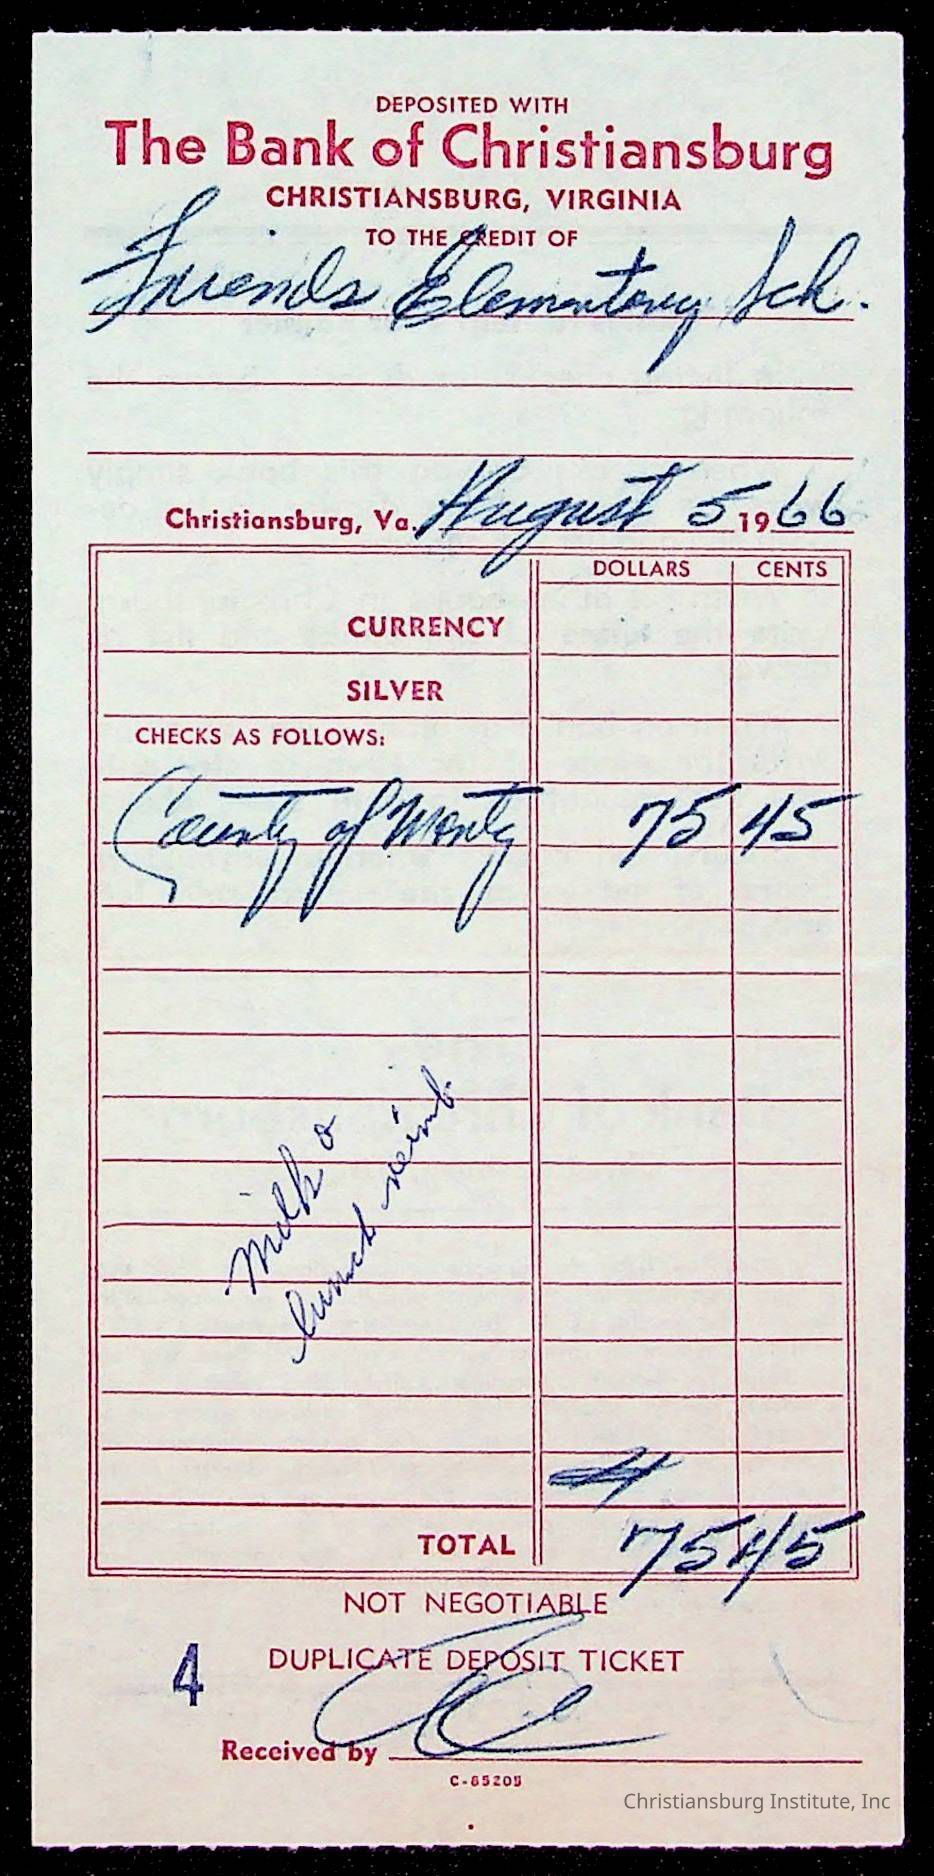 DEPOSITED WITH
The Bank of Christiansburg
CHRISTIANSBURG, VIRGINIA
TO THE CREDIT OF
Friends Elementary Sch.
Christiansburg, Va. August 5 1966
DOLLARS CENTS
CURRENCY
SILVER
CHECKS AS FOLLOWS:
County of Montg 75 45
Milk &
lunch reimb
TOTAL 75 45
NOT NEGOTIABLE
4 DUPLICATE DEPOSIT TICKET
Received by
C-65205
Christiansburg Institute, Inc